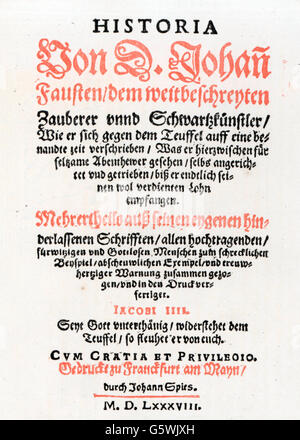 HISTORIA
Von D. Johañ
Fausten/dem weitbeschreyten
Zauberer vnnd Schwartzkünstler/
Wie er sich gegen dem Teuffel auff eine be-
nandte zeit verschrieben/ Was er hierzwischen für
seltzame Abenthewer gesehen/ selbs angerich-
tet vnd getrieben/ biß er endtlich sei-
nen wol verdienten Lohn
empfangen.
Mehrertheils auß seinen eygenen hin-
derlassenen Schrifften/ allen hochtragenden/
fürwitzigen vnd Gottlosen Menschen zum schrecklichen
Beyspiel/ abscheuwlichen Exempel/ vnd treuw-
hertziger Warnung zusammen gezo-
gen/ vnd in den Druck ver-
fertiget.
IACOBI IIII.
Seyt Gott vnterthänig/ widerstehet dem
Teuffel/ so fleuhet er von euch.
CVM GRATIA ET PRIVILEGIO.
Gedruckt zu Franckfurt am Mayn/
durch Johann Spies.
M. D. LXXXVIII.
alamy
G5WXJH
www.alamy.com